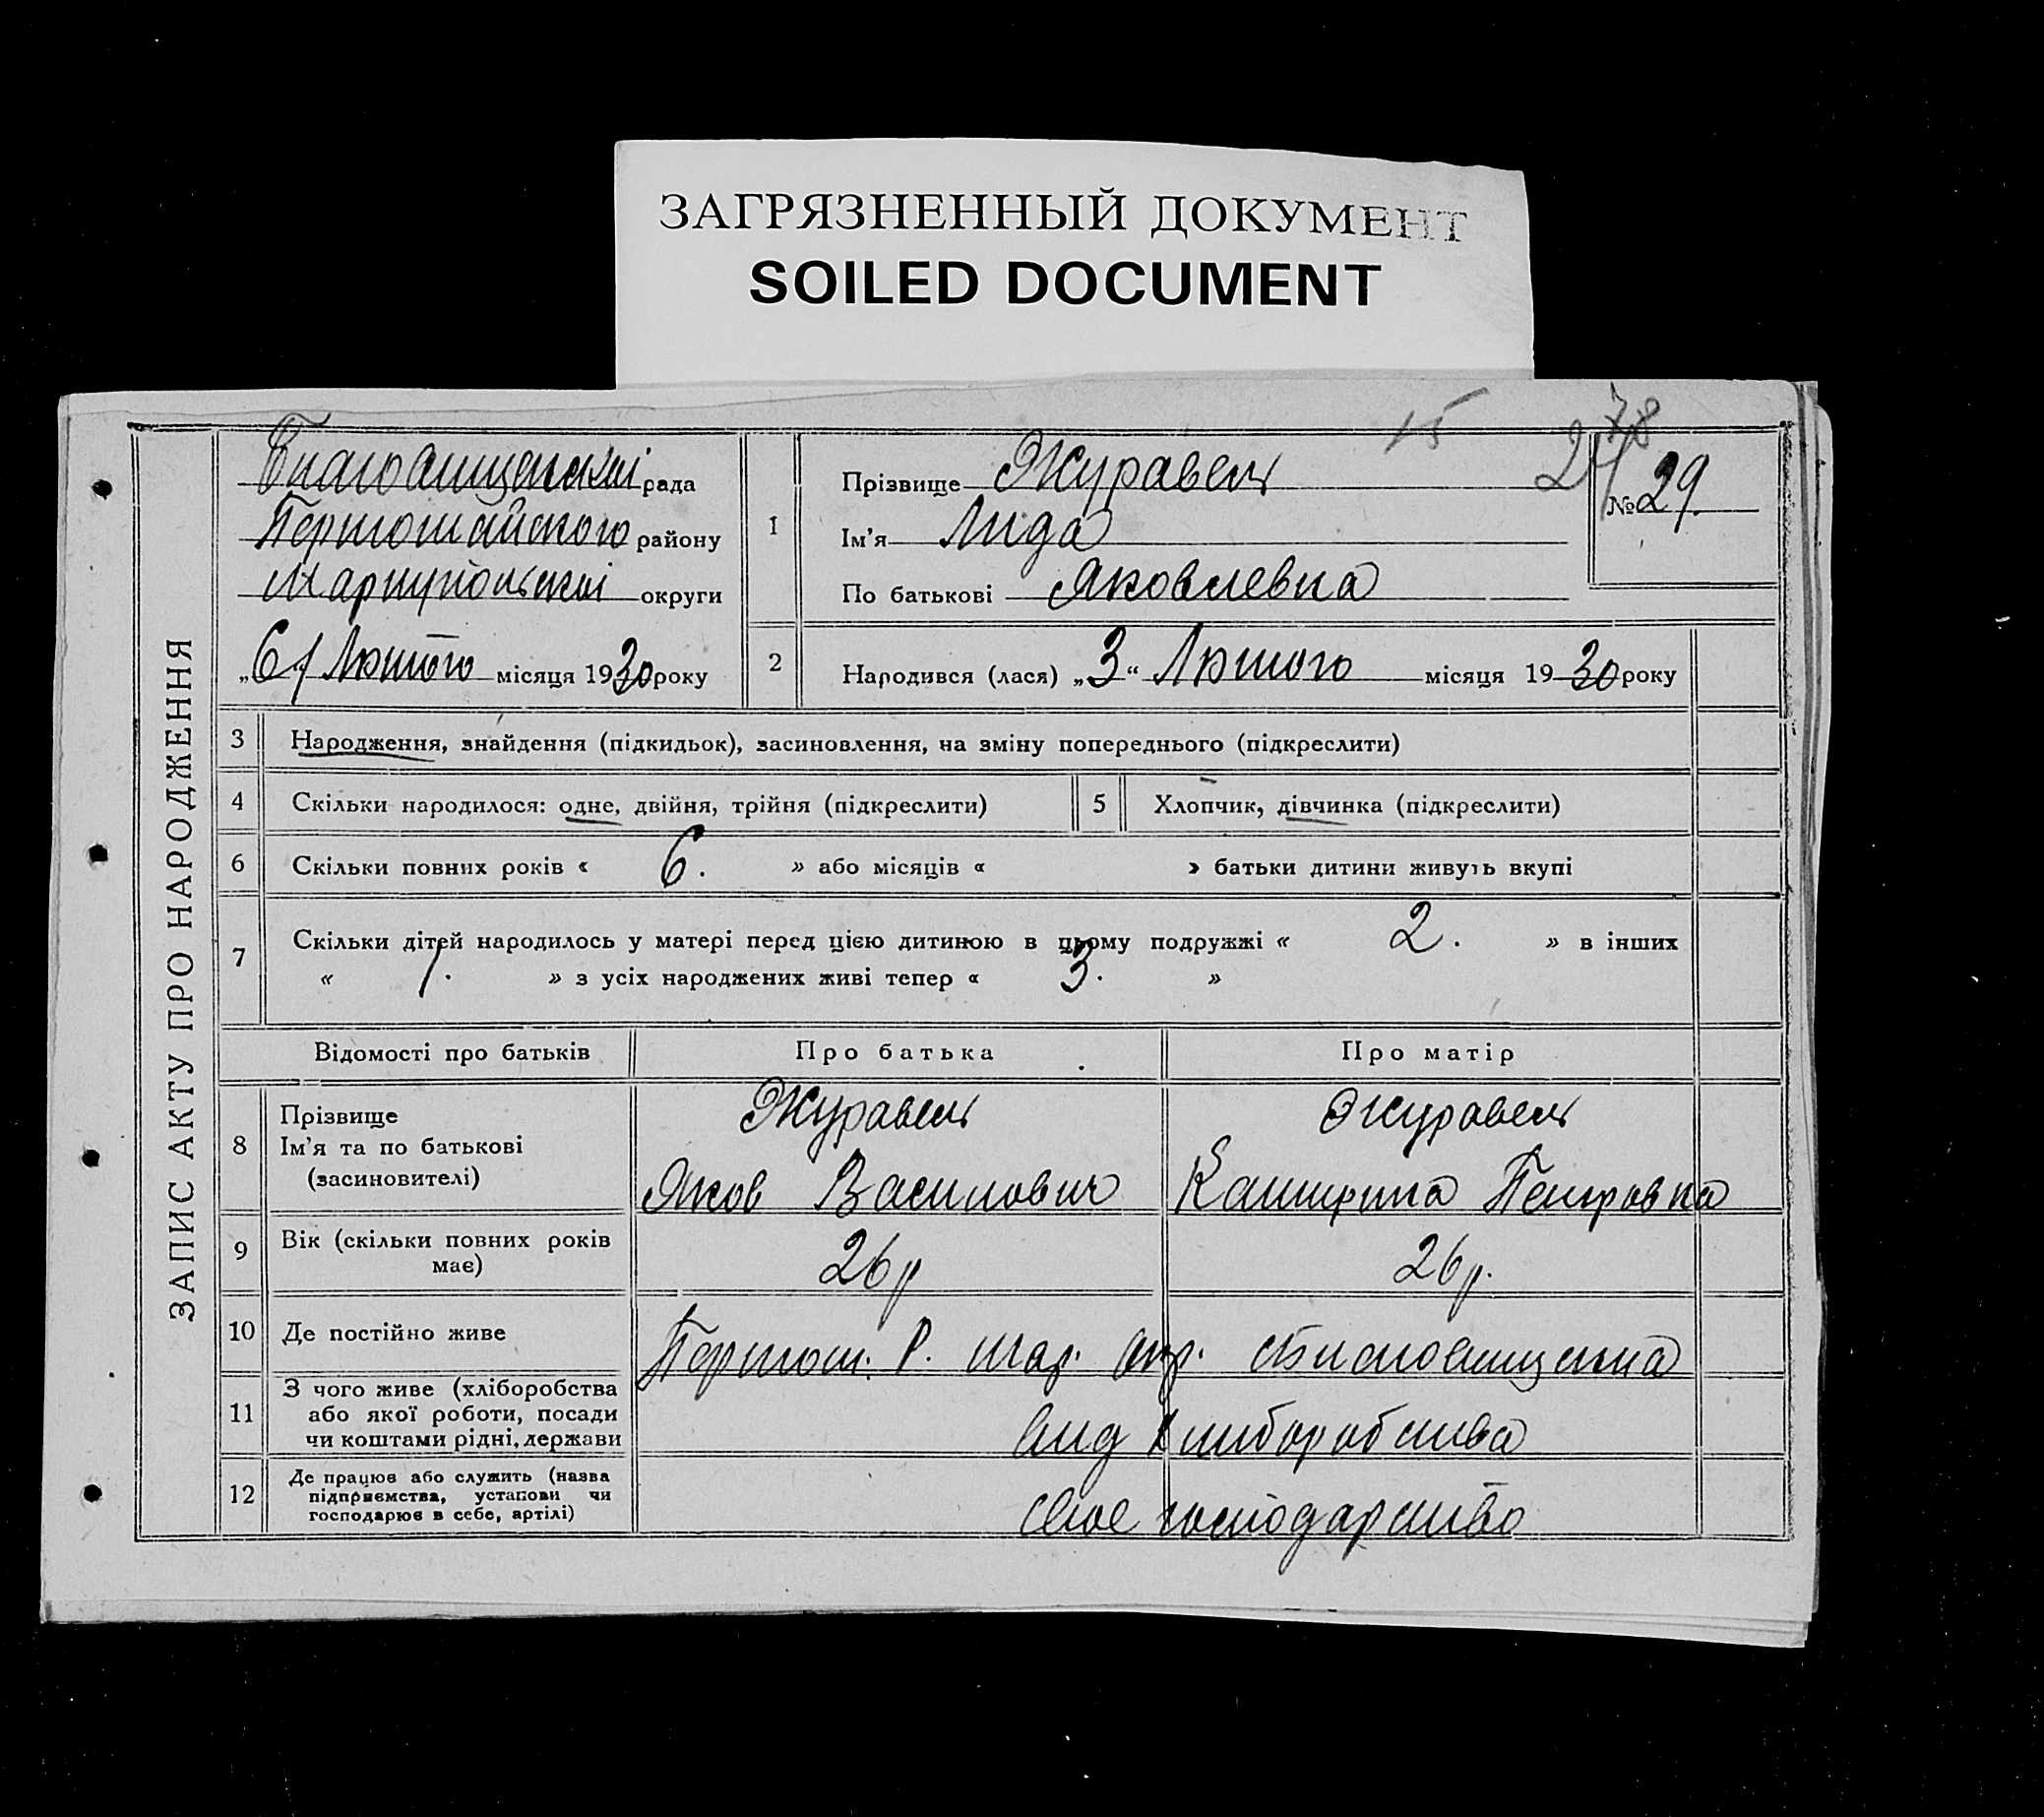 ЗАГРЯЗНЕННЫЙ ДОКУМЕНТ
SOILED DOCUMENT
15
78
24
ЗАПИС АКТУ ПРО НАРОДЖЕННЯ
Благовищенскі рада
Першотравского району
Маріупольскі округи
„6/ Лютого місяця 1930 року
1
Прізвище Журавель
Ім’я Лида
По батькові Яковлевна
№ 29.
2 Народився (лася) „3“ Лютого місяця 1930 року
3 Народження, знайдення (підкидьок), засиновлення, на зміну попереднього (підкреслити)
4 Скільки народилося: одне, двійня, трійня (підкреслити) 5 Хлопчик, дівчинка (підкреслити)
6 Скільки повних років « 6. » або місяців « » батьки дитини живуть вкупі
7 Скільки дітей народилось у матері перед цією дитиною в цьому подружжі « 2. » в інших
« 1. » з усіх народжених живі тепер « 3. »
Відомості про батьків Про батька Про матір
8 Прізвище Журавель Журавель
Ім’я та по батькові
(засновителі) Яков Василович Катирина Петровна
9 Вік (скільки повних років
має) 26 р 26 р.
10 Де постійно живе Першот. Р. Мар. окр. с Благовищенка
11 З чого живе (хліборобства
або якої роботи, посади
чи коштами рідні, держави вид хлиборобства
12 Де працює або служить (назва
підприємства, установи чи
господарює в себе, артілі) свое господарство